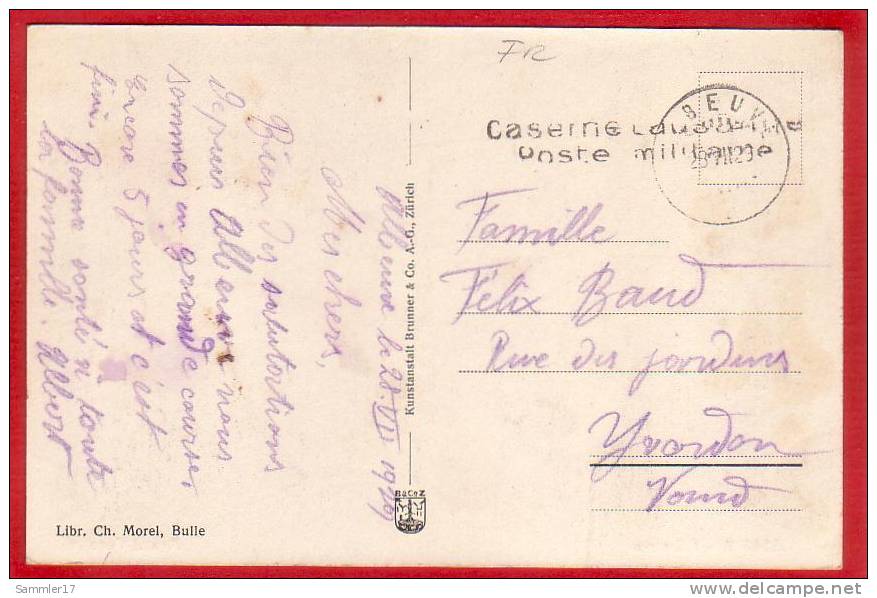 FR
Caserne
Poste militaire
Albeuve le 28 VII 1929
Mes chers,
Bien des salutations
depuis Albeuve nous
sommes en grande course,
encore 5 jours et c'est
fini. Bonne santé à toute
la famille. Albert
Kunstanstalt Brunner & Co. A.-G., Zürich
Famille
Félix Baud
Rue des jardins
Yverdon
Vaud
Libr. Ch. Morel, Bulle
Sammler17